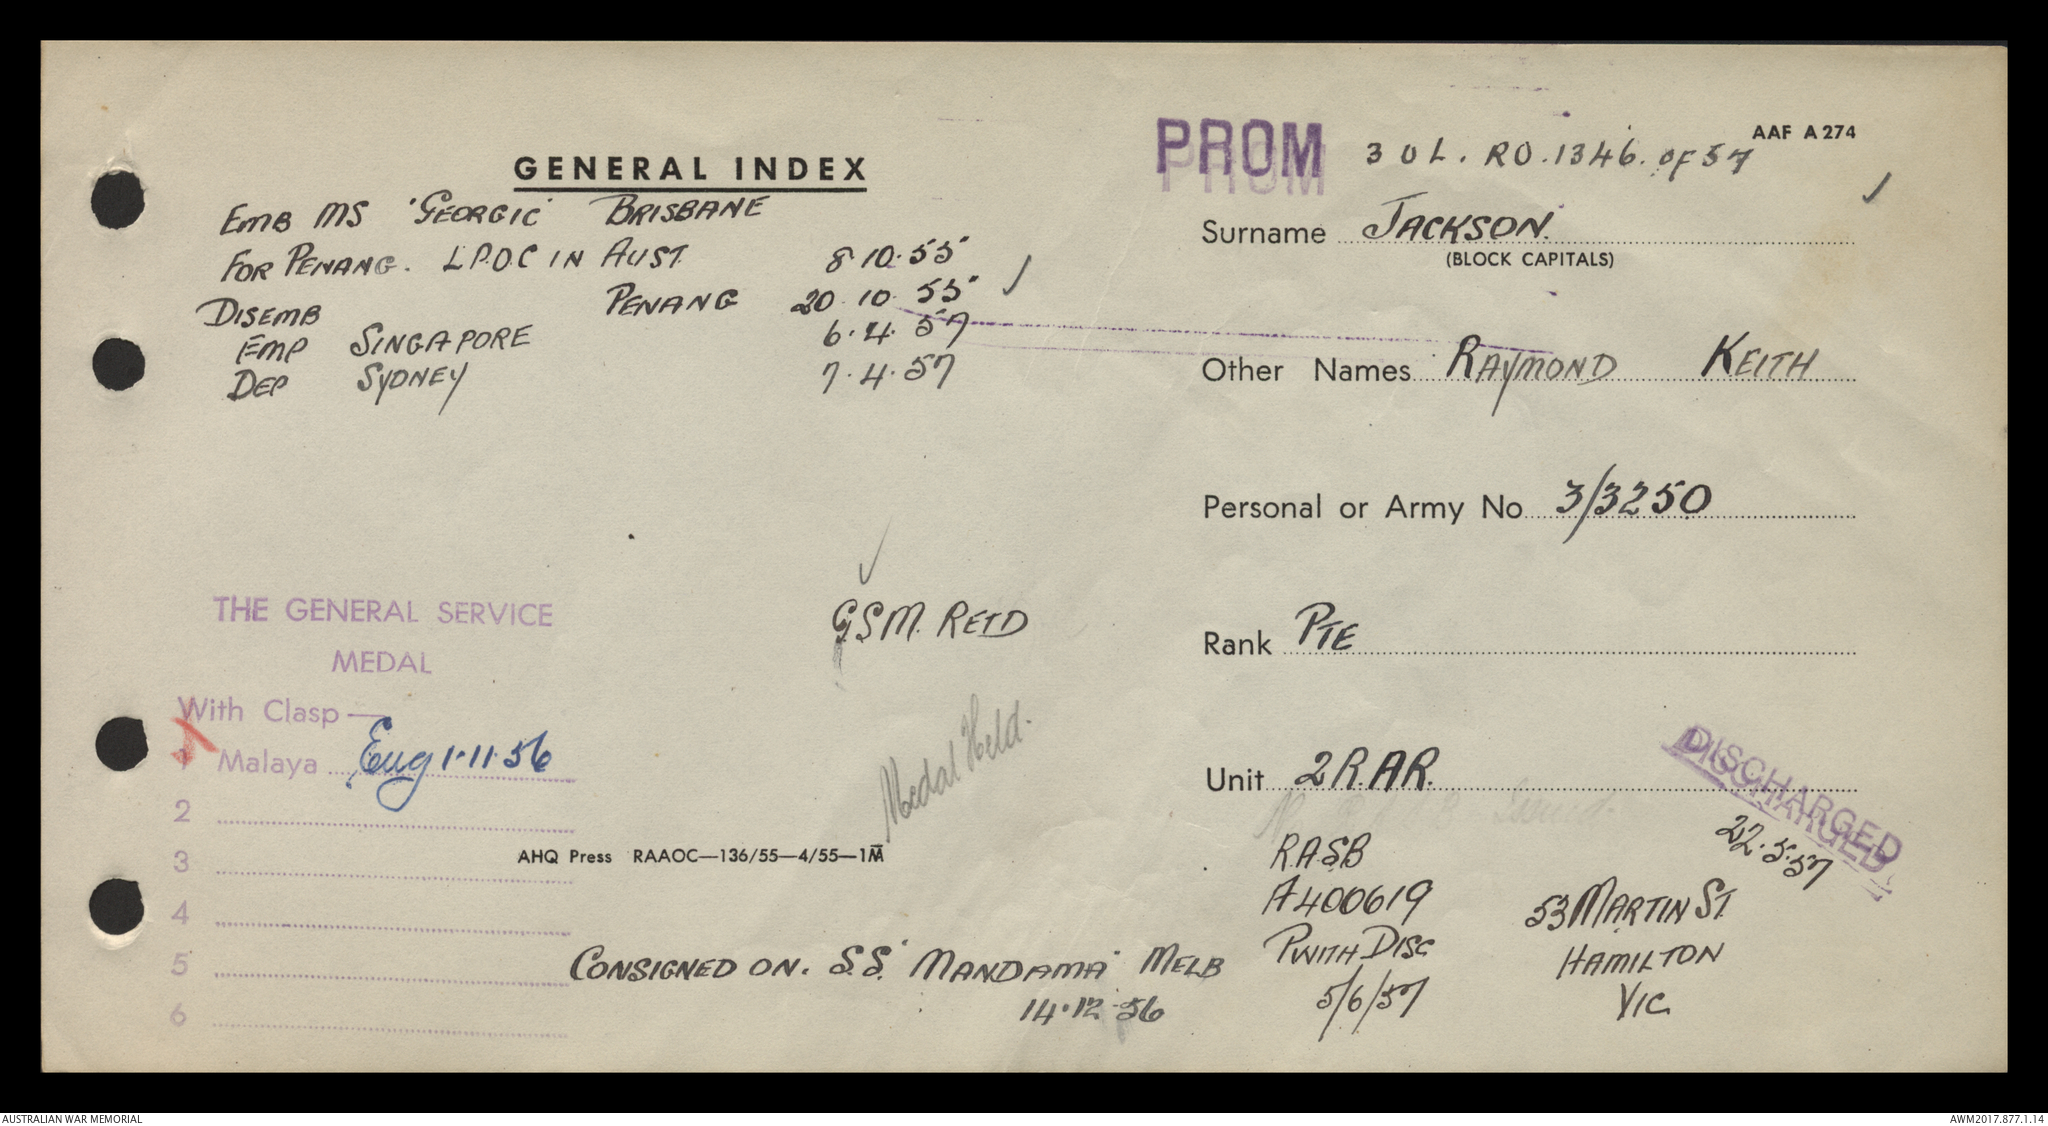 AAF A 274
PROM 3 O L. RO. 1346. OF 57
GENERAL INDEX
EMB MS 'GEORGIC' BRISBANE
FOR PENANG. L.P.O.C IN AUST. 8.10.55
DISEMB PENANG 20.10.55
EMP SINGAPORE 6.4.57
DEP SYDNEY 7.4.57
Surname JACKSON.
(BLOCK CAPITALS)
Other Names RAYMOND KEITH
Personal or Army No 3/3250
Rank PTE
Unit 2 R.A.R.
THE GENERAL SERVICE
MEDAL
With Clasp—
1 Malaya Eng 1.11.56
2
3
4
5
6
G.S.M. RETD
Medal Held.
AHQ Press RAAOC—136/55—4/55—1M
CONSIGNED ON. S.S. 'MANDAMA' MELB
14.12.56
R.A.S.B
A400619
PWITH DISC
5/6/57
DISCHARGED
22.5.57
53 MARTIN ST.
HAMILTON
VIC
AUSTRALIAN WAR MEMORIAL
AWM2017.877.1.14